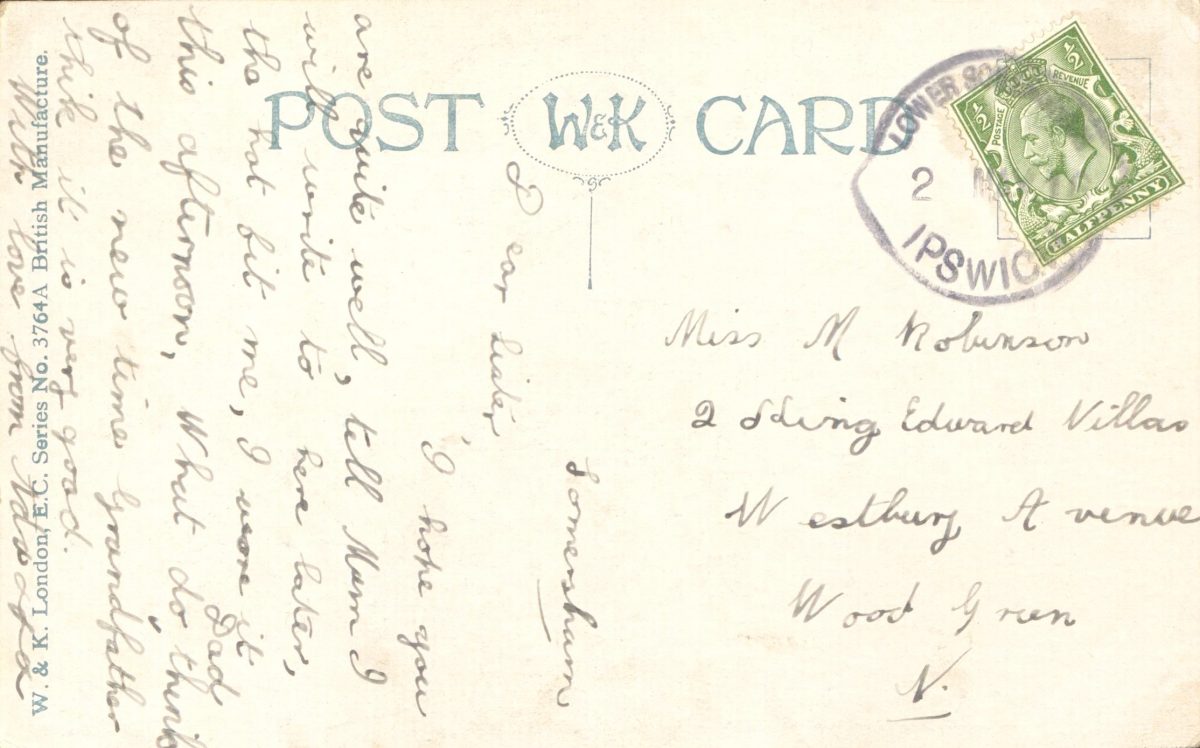 POST W&K CARD
LOWER SO
2 M
IPSWIC
POSTAGE REVENUE
½ ½
HALFPENNY
Miss M Robinson
2 King Edward Villas
Westbury Avenue
Wood Green
N.
Somersham
Dear Sister,
I hope you
are quite well, tell Mum I
will write to here later,
the hat fit me, I wore it
Dad
this afternoon, What do think
of the new time Grandfather
thik it is very good.
With love from
W. & K. London, E.C. Series No. 3764A British Manufacture.